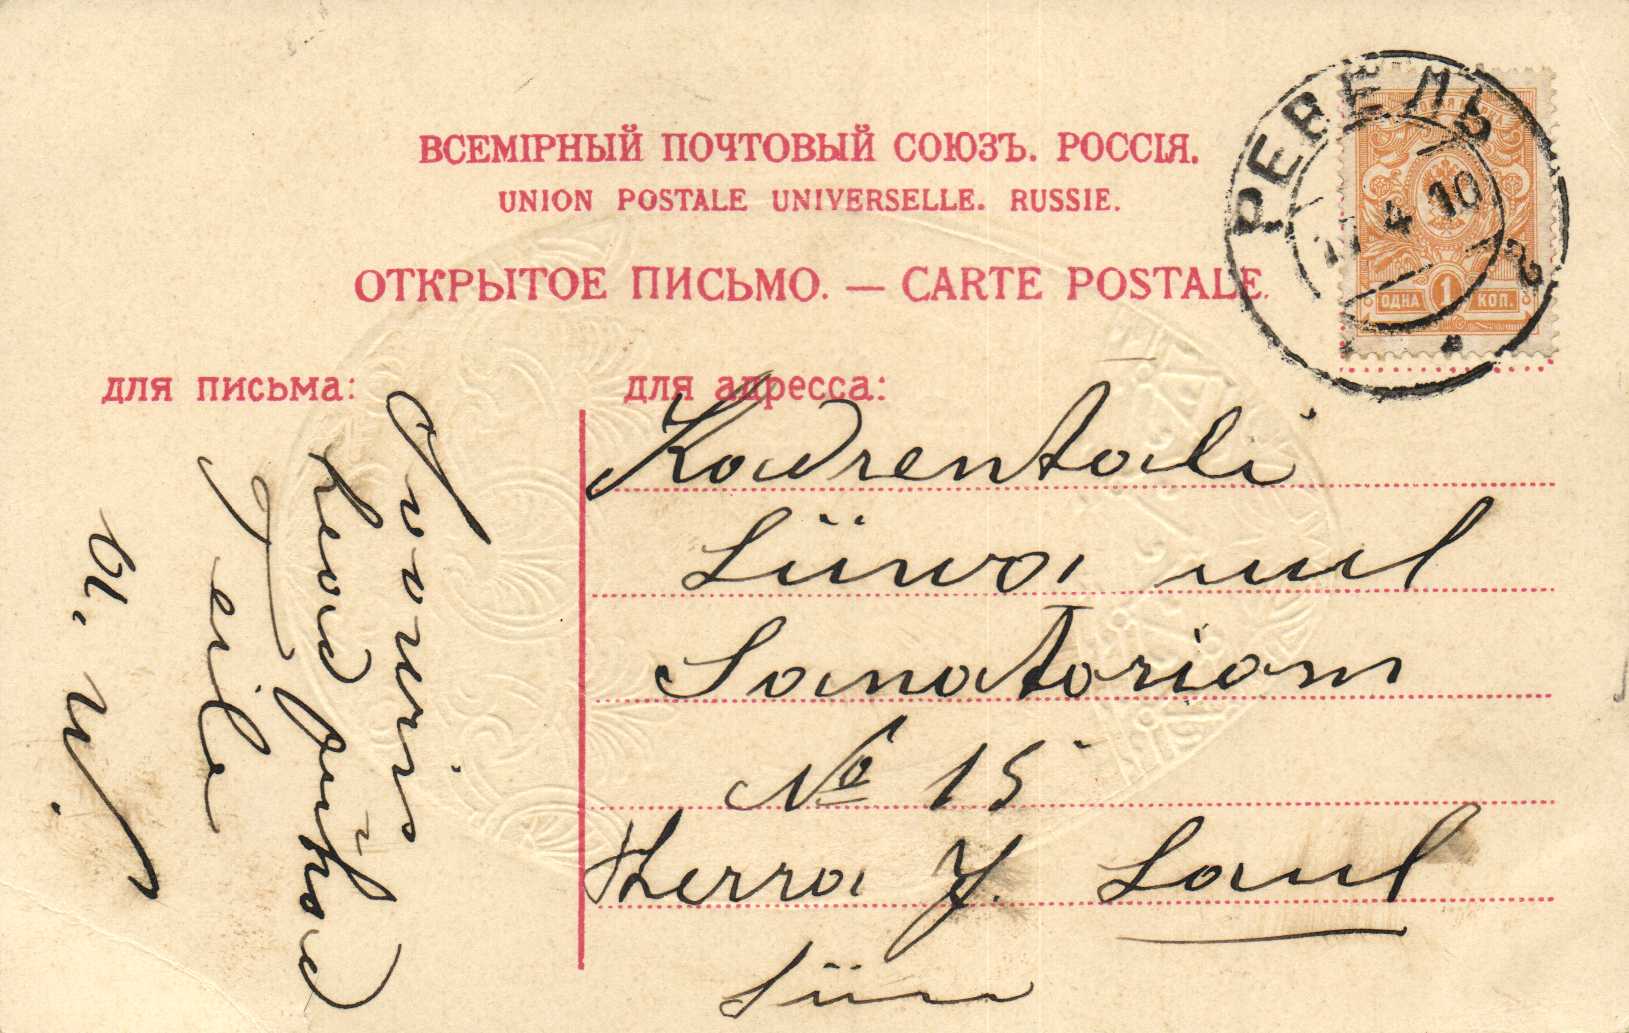 ВСЕМІРНЫЙ ПОЧТОВЫЙ СОЮЗЪ. РОССІЯ.
UNION POSTALE UNIVERSELLE. RUSSIE.
ОТКРЫТОЕ ПИСЬМО. — CARTE POSTALE.
РЕВЕЛЬ
4 10
2
ОДНА 1 КОП.
для письма:
для адресса:
Kadrentali
Liiwa uul
Sanatorium
№ 15
Herra J. Laul
Siin
Soowin
Head pühad
Teile